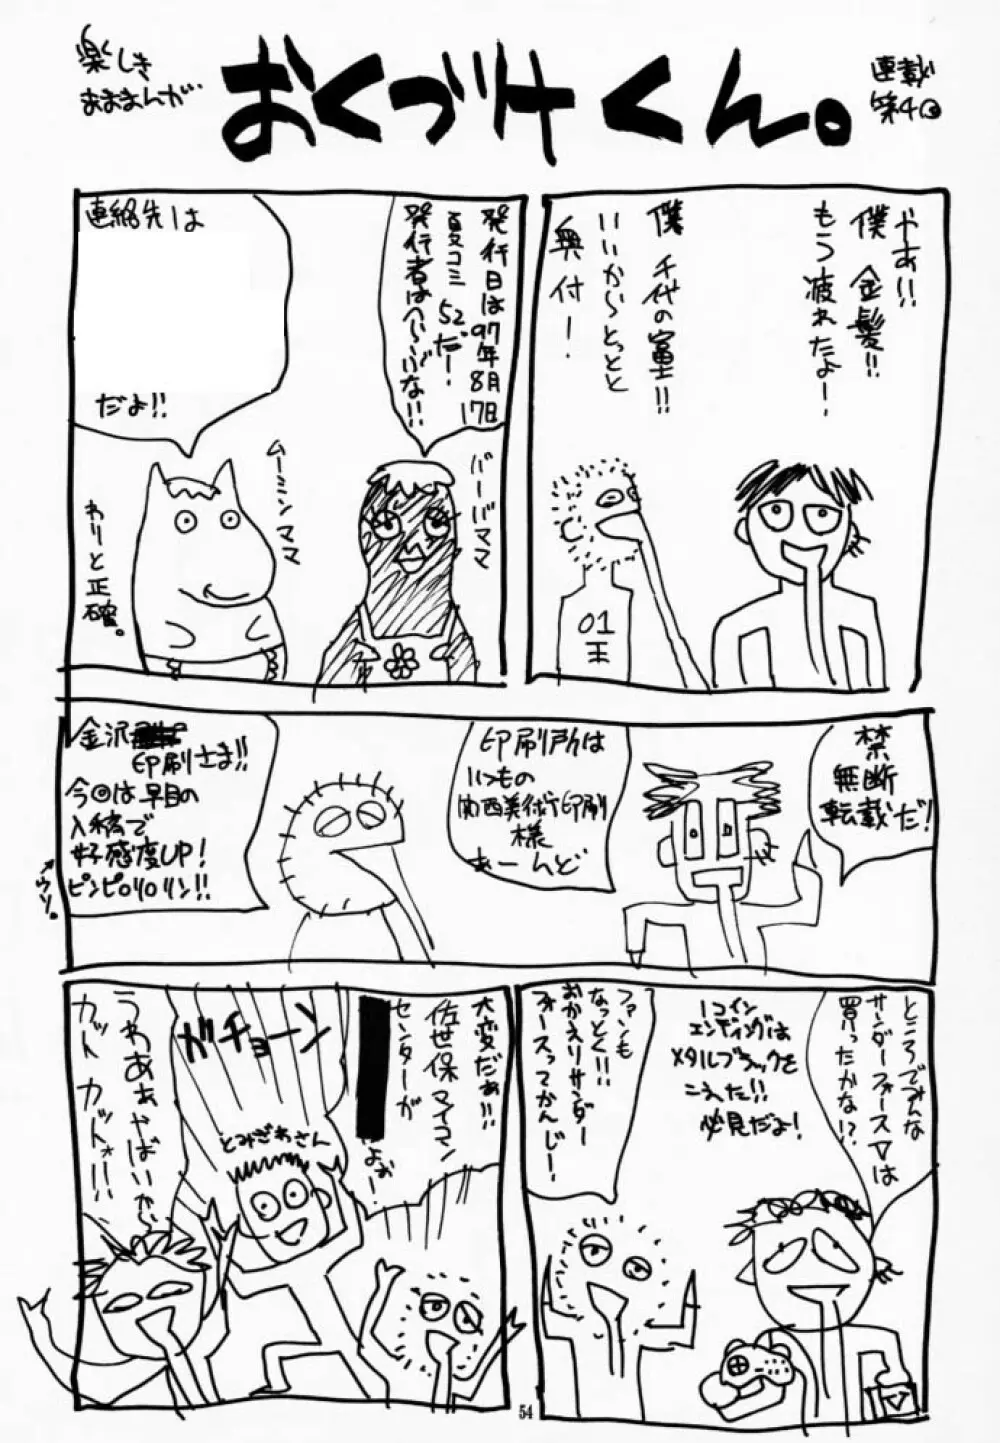 楽しき
おまままんが
おくづけくん。
連載
第4回
やあ!!
僕 金髪!!
もう疲れたよー
僕 千代の富士!!
いいからとっとと
奥付!
01
王
発行日は97年8月17日
夏コミ 52だー!
発行者はへらいぶな!!
バーバママ
連絡先は
だよ!!
ムーミンママ
わりと正確。
禁
無断
転載だ!
印刷所は
いつもの
関西美術印刷
様
あーんど
金沢
印刷さま!!
今回は早目の
入稿で
好感度UP!
ピンピロリロリン!!
←ウソ。
ところでみんな
サンダーフォースVは
買ったかな!?
1コイン
エンディングは
メタルブラックを
こえた!!
必見だよ!
ファンも
なっとく!!
おかえりサンダー
フォースってかんじ!
大変だぁ!!
佐世保マイコン
センターが
よぉー!
ガチョーン
とみざわさん
うわあぁやばいから
カット カットォ!!
54